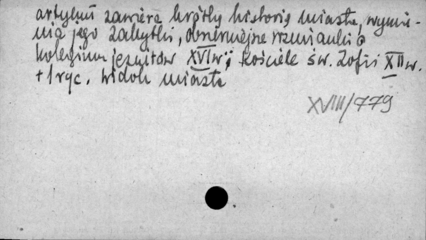 artykuł zawiera krótką historię miasta, wymie-
nia jego zabytki, obszerniejsze wzmianki o
kolegium jezuitów XVI w; kościele św. Zofii XII w.
+ 1 ryc. widok miasta
XVIII/779